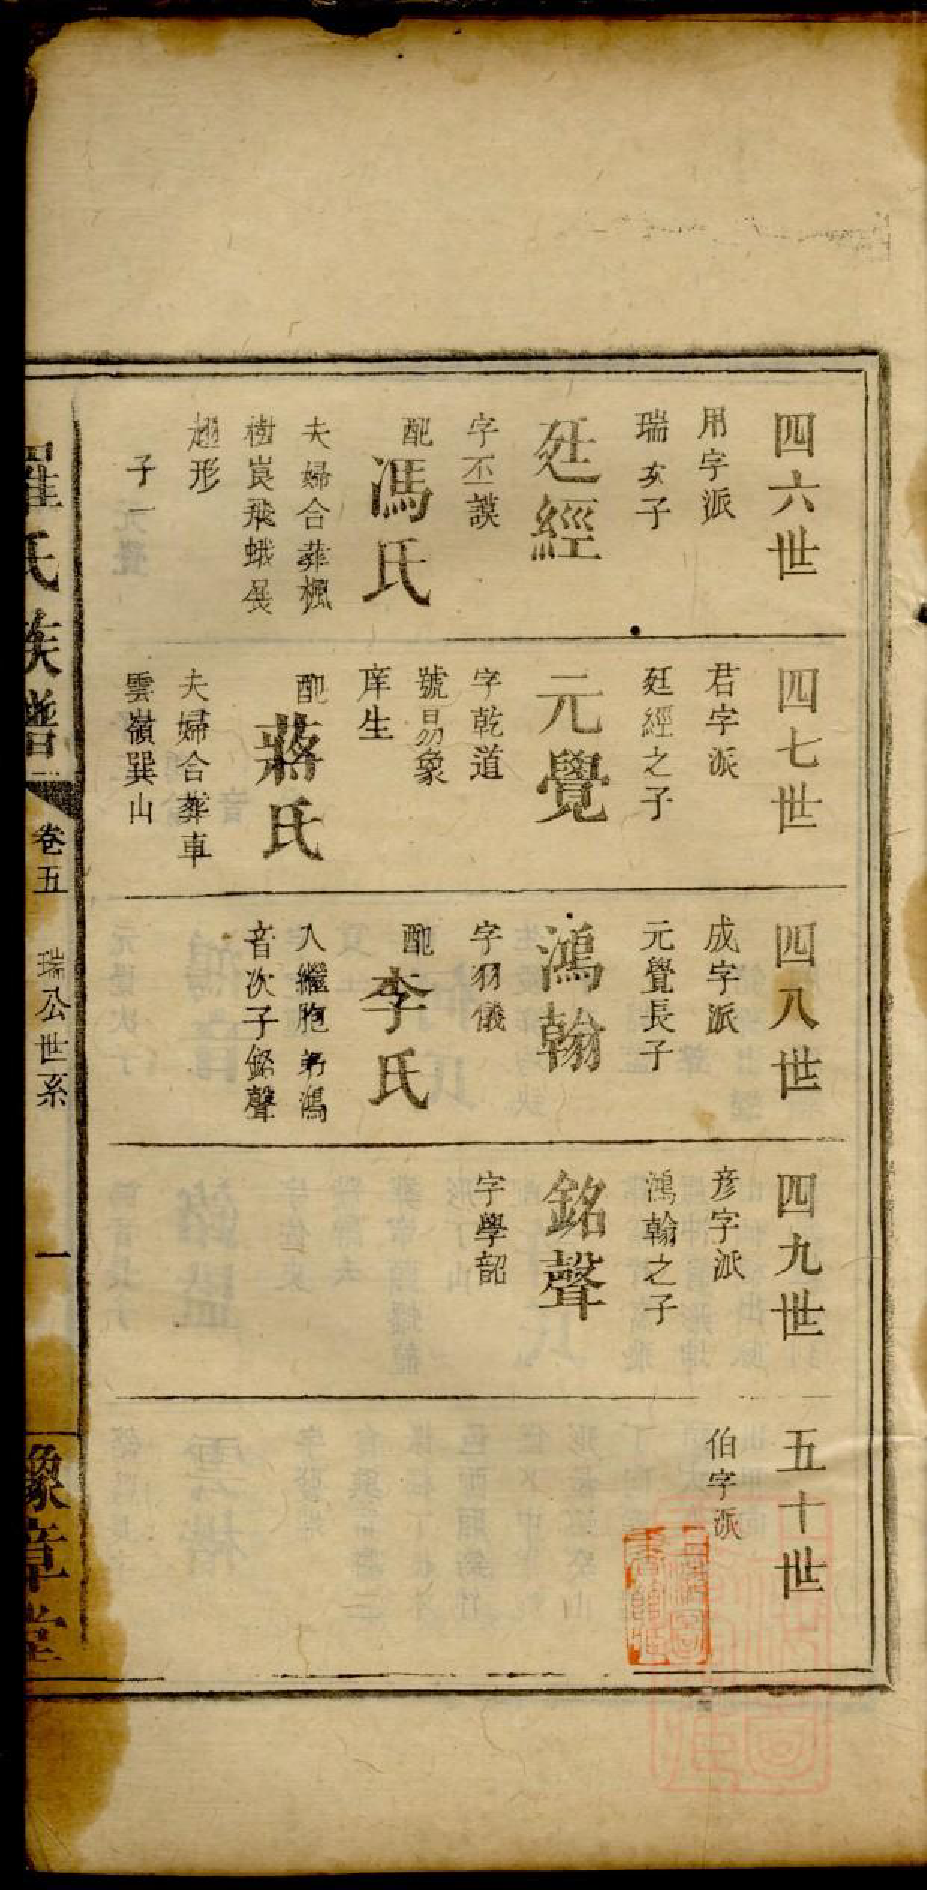 四六世
用字派
瑞 子
廷經
字丕謨
配馮氏
夫婦合葬楓
樹崀飛蛾晨
趐形
子一
四七世
君字派
廷經之子
元覺
字乾道
號易象
庠生
配蔣氏
夫婦合葬車
雲嶺巽山
四八世
成字派
元覺長子
鴻翰
字羽儀
配李氏
入繼胞弟鴻
音次子銘聲
四九世
彦字派
鴻翰之子
銘聲
字學韶
五十世
伯字派
羅氏族譜
卷五
瑞公世系
一
豫章堂